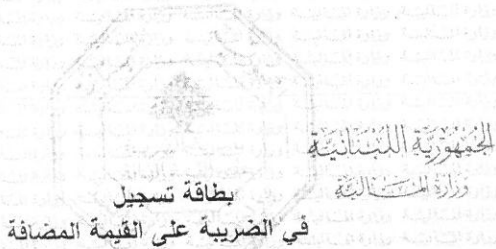 الجمهورية اللبنانية
وزارة المالية
بطاقة تسجيل
في الضريبة على القيمة المضافة